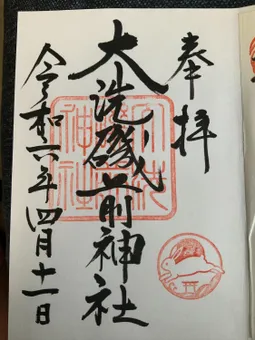 奉拝
大洗磯前神社
令和六年四月十一日